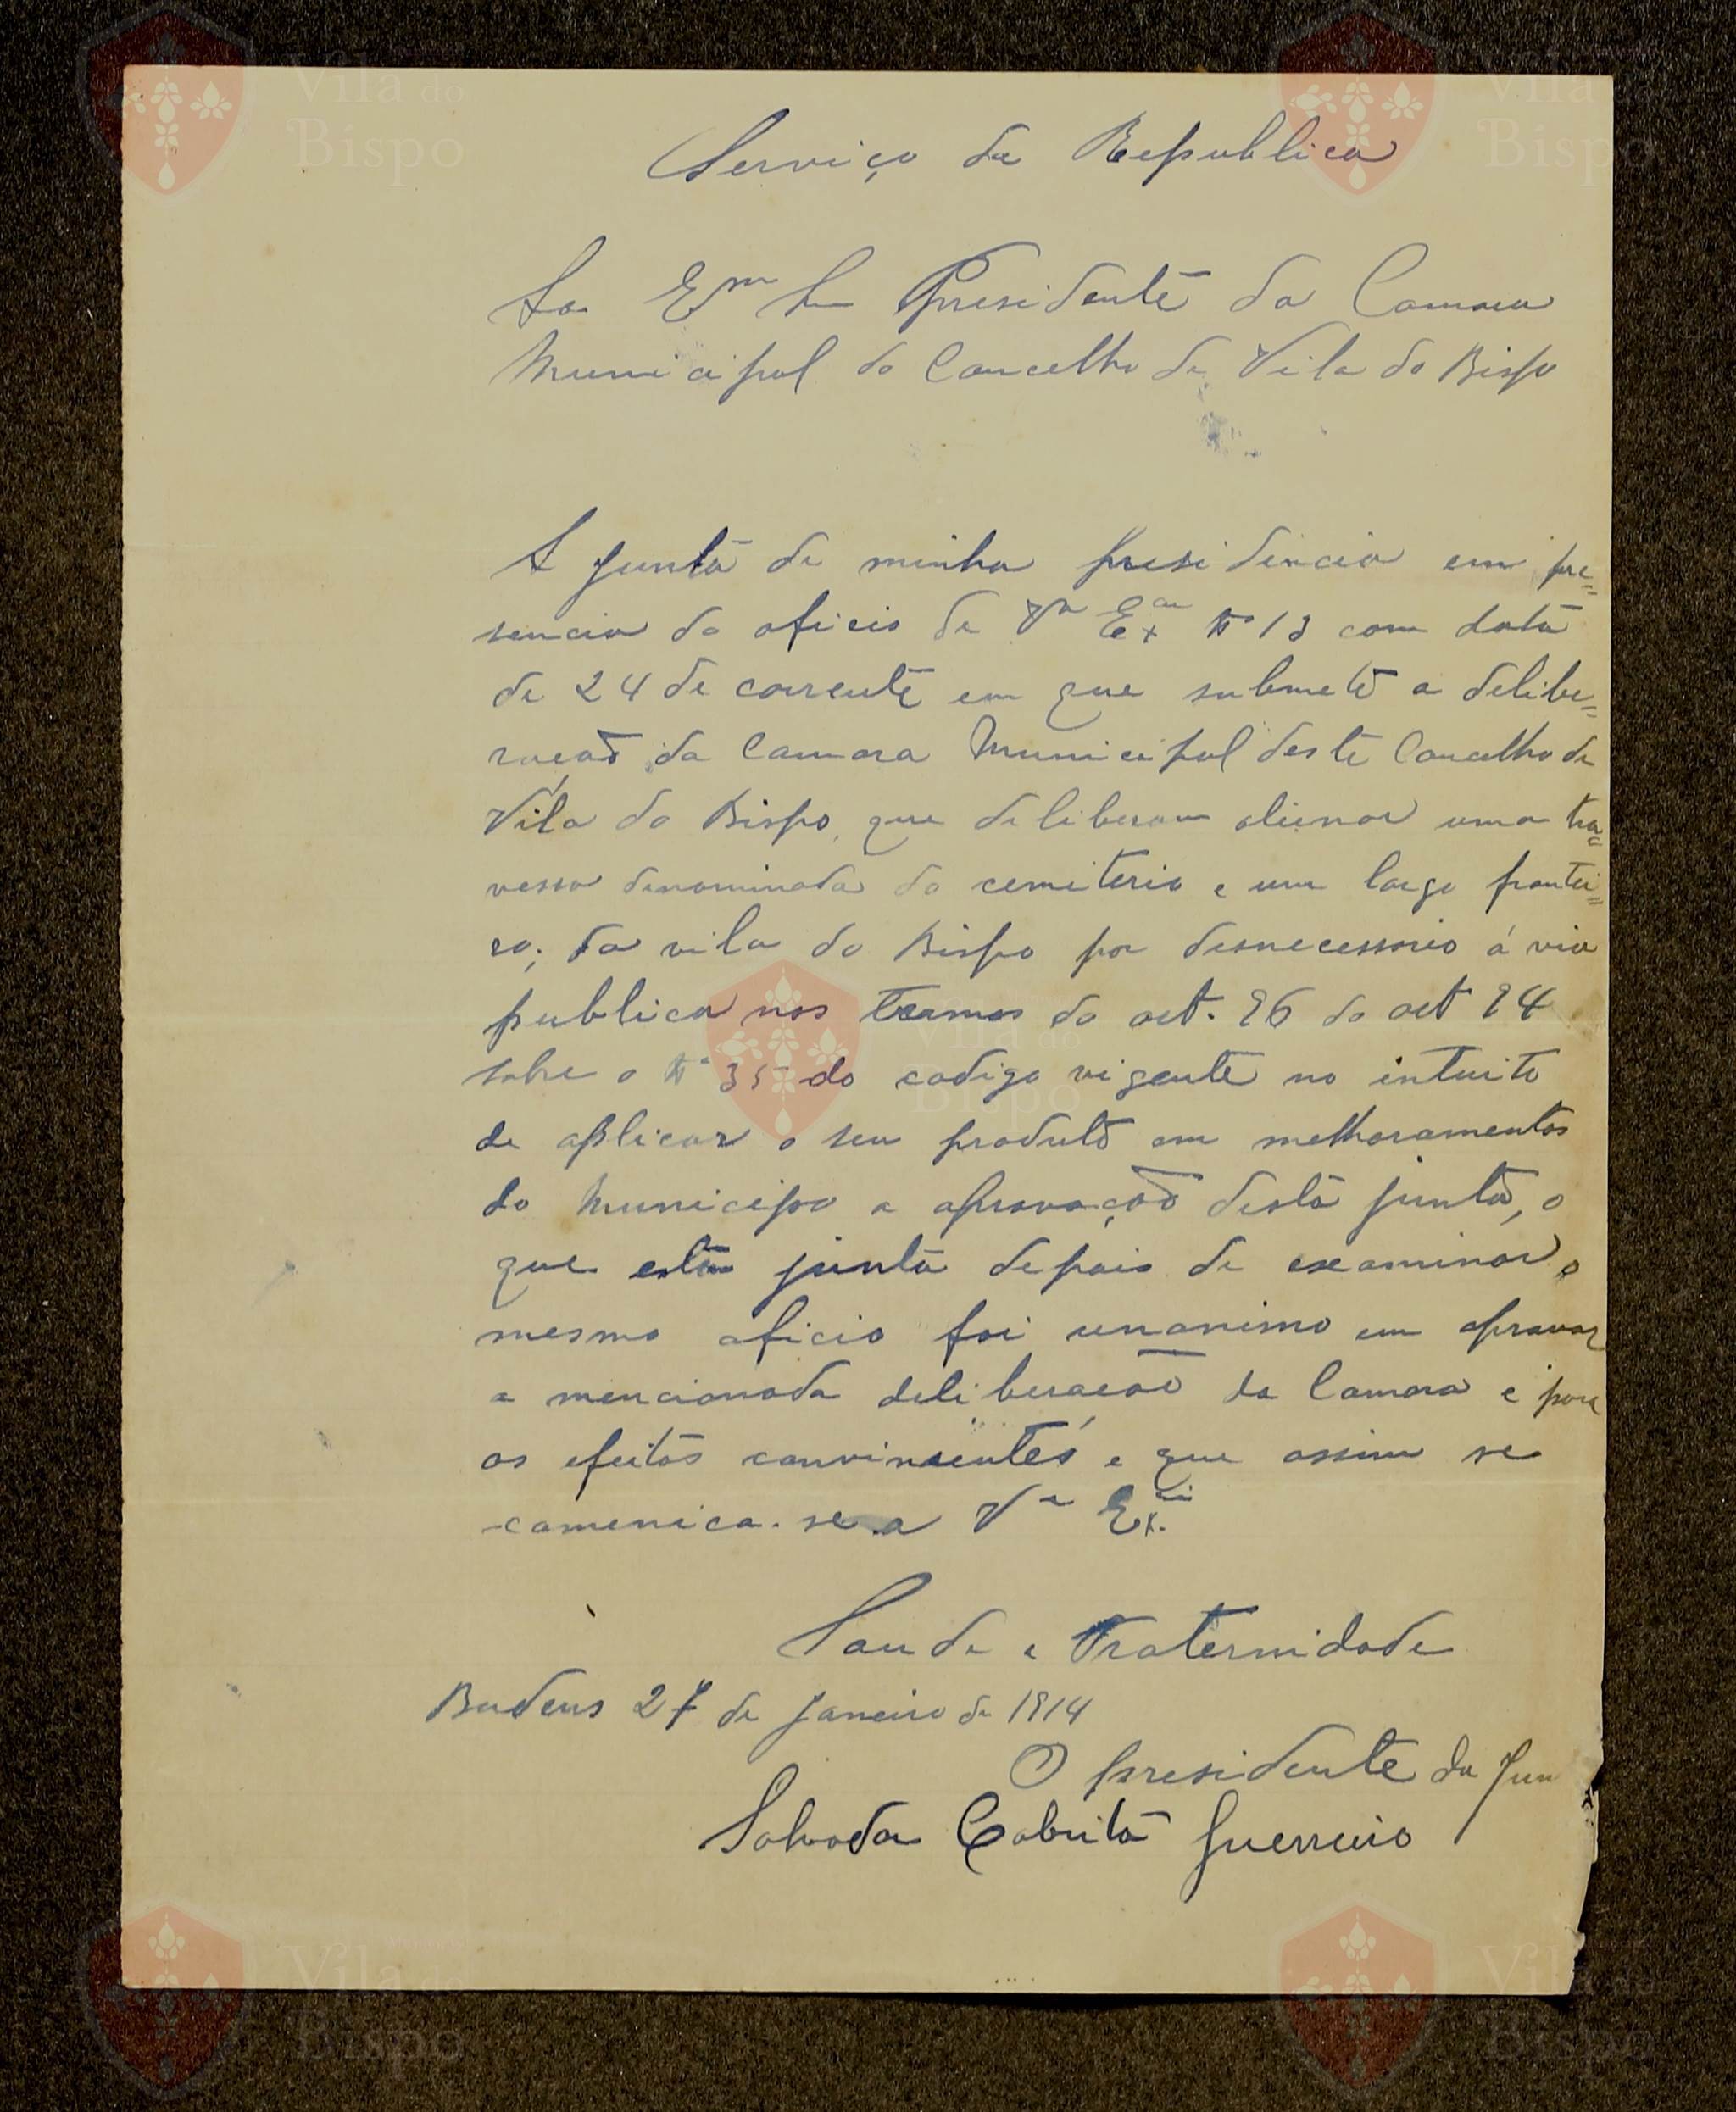 Serviço da Republica
Ao Exmo Snr Presidente da Camara
Municipal do Concelho de Vila do Bispo
A Junta de minha presidencia em pre=
sencia do oficio de Va Exa No 13 com data
de 24 de corrente em que submete a delibe=
ração da Camara Municipal deste Concelho de
Vila do Bispo, que deliberou alienar uma tra=
vessa denominada do cemiterio e um largo frontei=
ro; da vila do Bispo por desnecessario á via
publica nos termos do art. 96 do art 94
sobre o No 35 do codigo vigente no intuito
de aplicar o seu produto em melhoramentos
do Municipo a aprovação desta junta, o
que esta junta depois de examinar o
mesmo oficio foi unanimo em aprovar
a mencionada deliberação da Camara e para
os efeitos convinientes e que assim se
comenica-se a Va Exa
Saude e Fraternidade
Budens 27 de Janeiro de 1914
O presidente da Jun
Salvador Cabrita Guerreiro
Vila do
Bispo
Vila do
Bispo
Vila do
Bispo
Vila do
Bispo
Vila do
Bispo